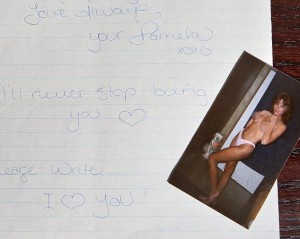 Love Always,
your Pamela
xoxo
I'll never stop loving
you ♡
Please Write
I ♡ you!